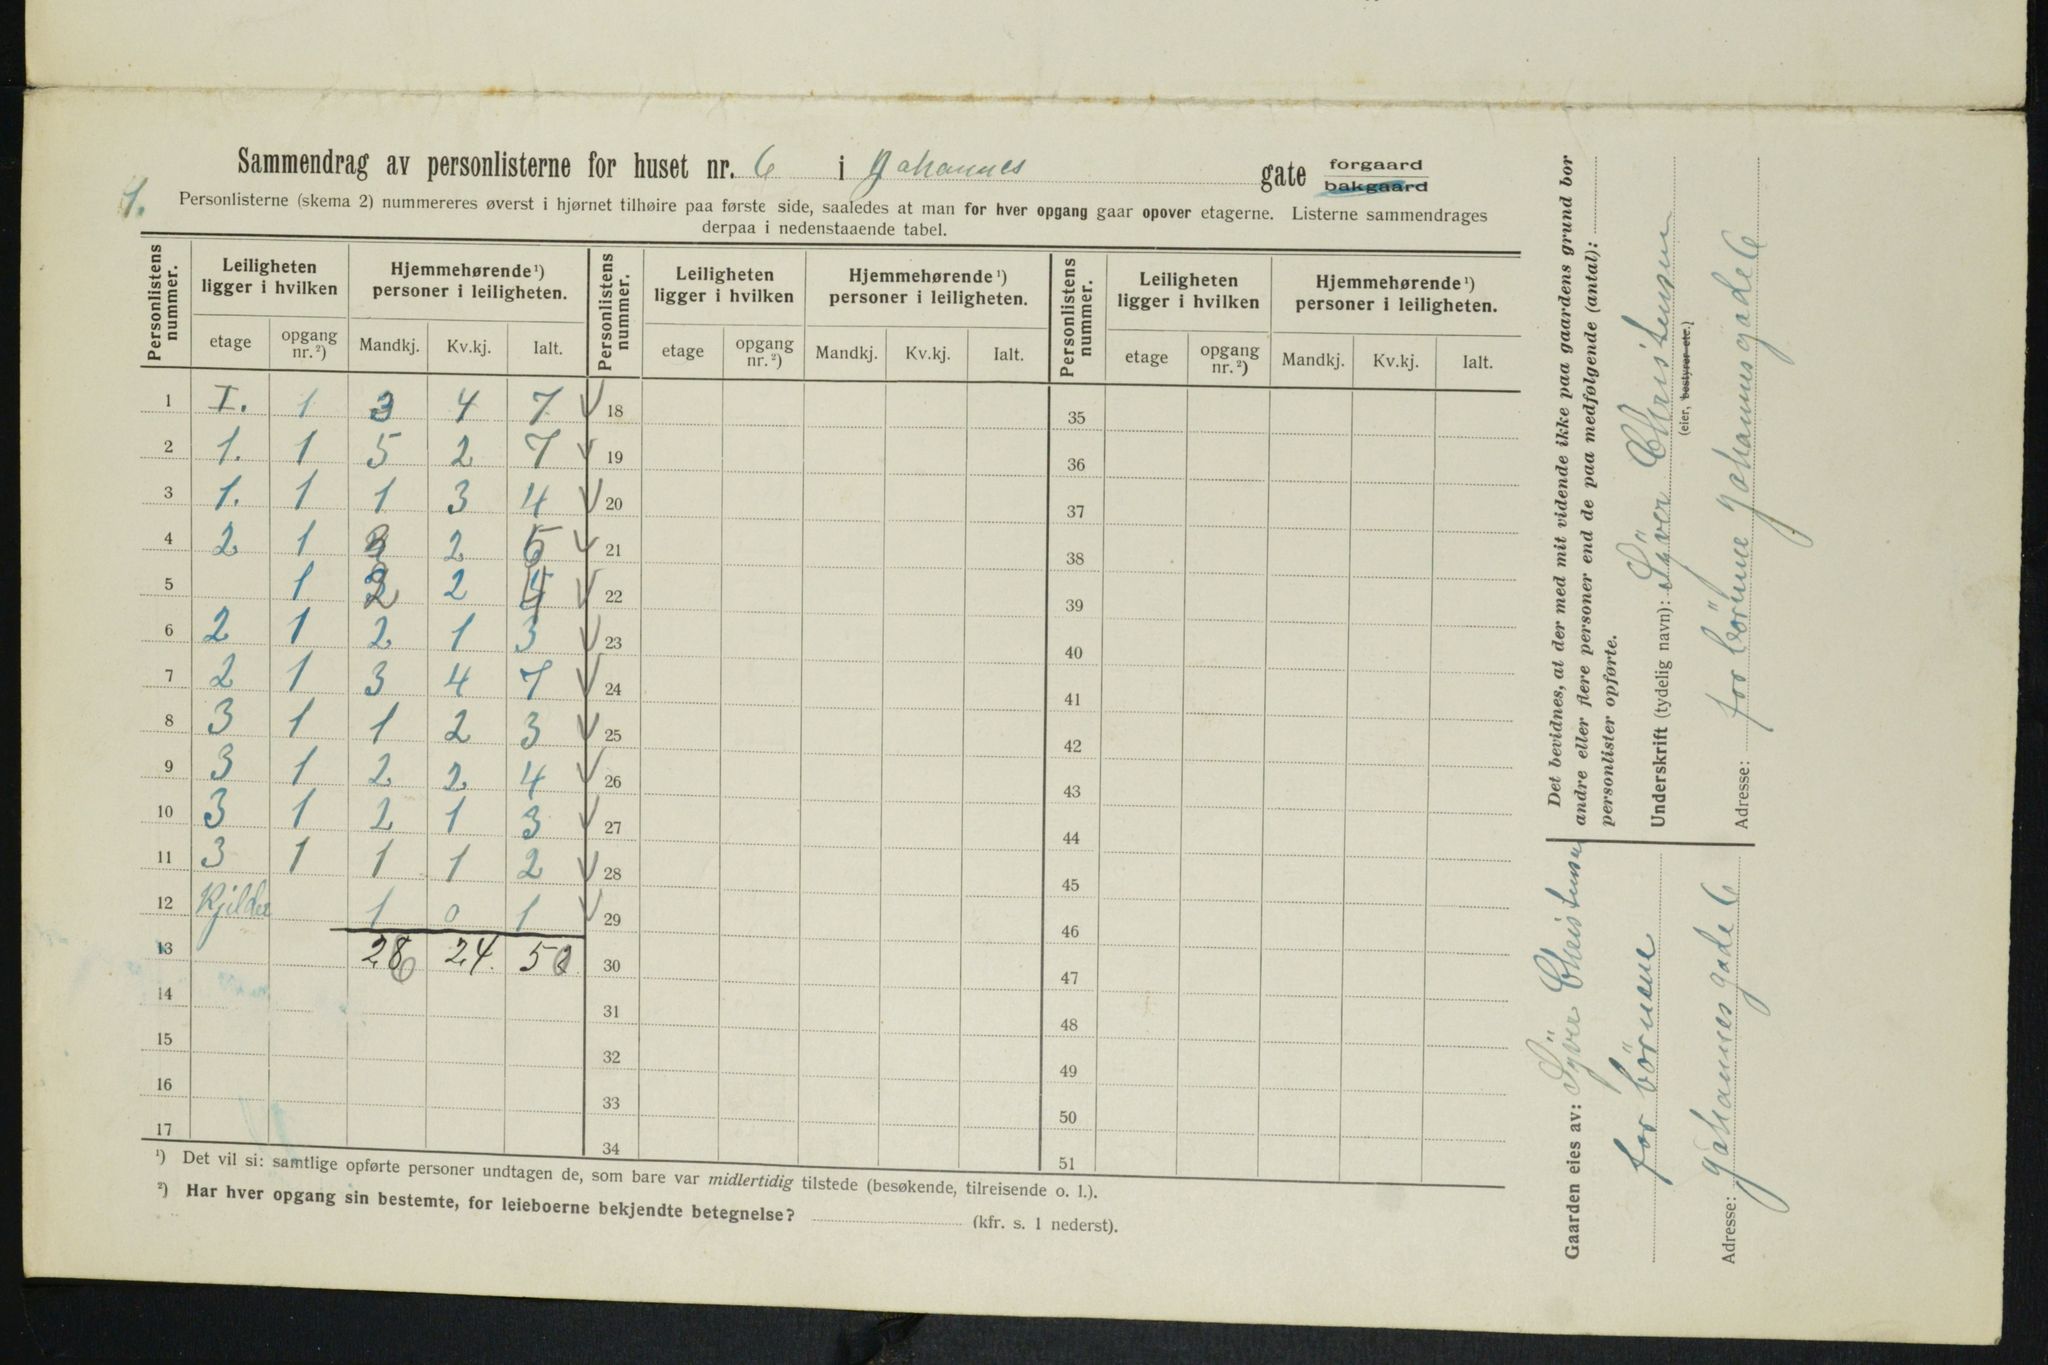 Sammendrag av personlisterne for huset nr. 6 i Johannes gate forgaard bakgaard
1.
Personlisterne (skema 2) nummereres øverst i hjørnet tilhøire paa første side, saaledes at man for hver opgang gaar opover etagerne. Listerne sammendrages
derpaa i nedenstaaende tabel.
Personlistens nummer. Leiligheten ligger i hvilken Hjemmehørende ¹) personer i leiligheten. Personlistens nummer. Leiligheten ligger i hvilken Hjemmehørende ¹) personer i leiligheten. Personlistens nummer. Leiligheten ligger i hvilken Hjemmehørende ¹) personer i leiligheten.
etage opgang nr. ²) Mandkj. Kv.kj. Ialt. etage opgang nr. ²) Mandkj. Kv.kj. Ialt. etage opgang nr. ²) Mandkj. Kv.kj. Ialt.
1 I. 1 3 4 7 18 35
2 1. 1 5 2 7 19 36
3 1. 1 1 3 4 20 37
4 2 1 3 2 5 21 38
5 1 2 2 4 22 39
6 2 1 2 1 3 23 40
7 2 1 3 4 7 24 41
8 3 1 1 2 3 25 42
9 3 1 2 2 4 26 43
10 3 1 2 1 3 27 44
11 3 1 1 1 2 28 45
12 Kjilder 1 0 1 29 46
13 26 24. 50 30 47
14 31 48
15 32 49
16 33 50
17 34 51
¹) Det vil si: samtlige opførte personer undtagen de, som bare var midlertidig tilstede (besøkende, tilreisende o. l.).
²) Har hver opgang sin bestemte, for leieboerne bekjendte betegnelse? (kfr. s. 1 nederst).
Det bevidnes, at der med mit vidende ikke paa gaardens grund bor
andre eller flere personer end de paa medfølgende (antal):
personlister opførte.
Underskrift (tydelig navn): Syver Christensen
(eier, bestyrer etc.)
Adresse: for börnne Johannesgade 6
Gaarden eies av: Syver Christensen
for börnene
Adresse: Johannesgade 6